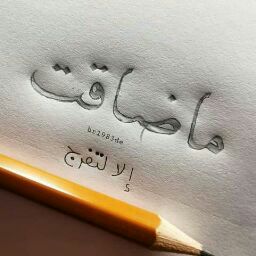 ما ضاقت
br1983de
إلا لتفرج